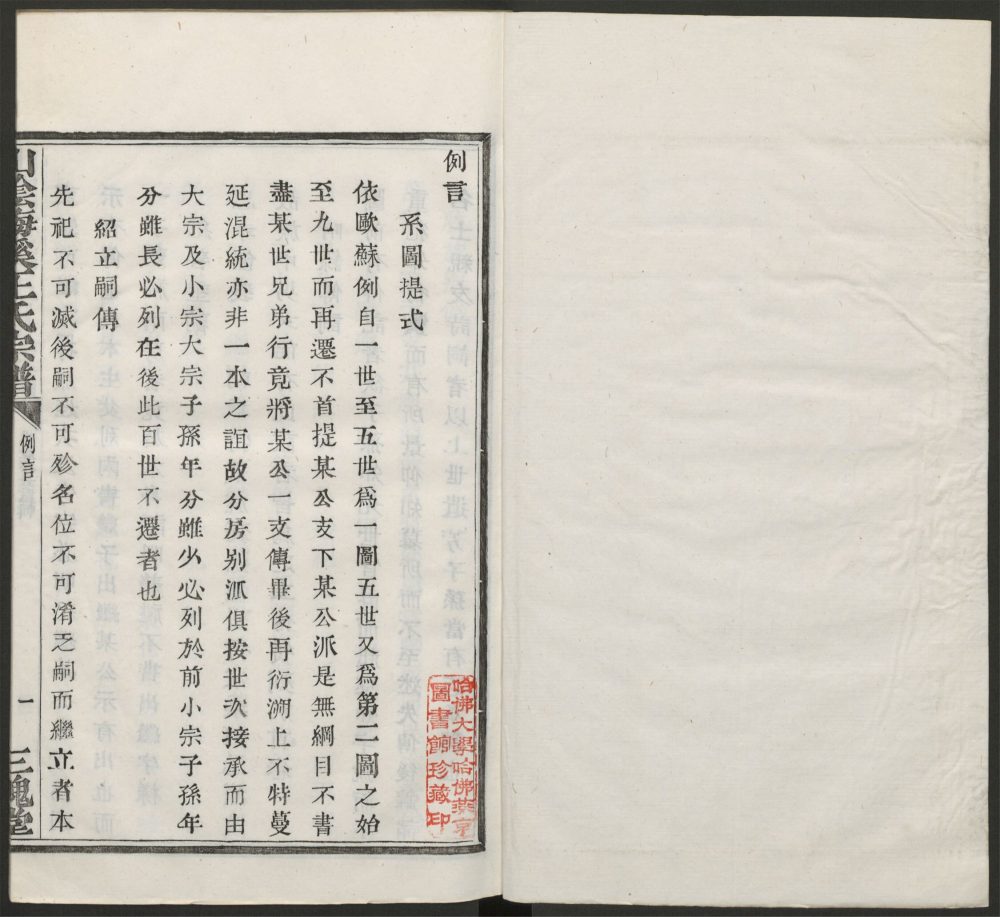 例言
系圖提式
依歐蘇例自一世至五世爲一圖五世又爲第二圖之始
至九世而再遷不首提某公支下某公派是無綱目不書
盡某世兄弟行竟將某公一支傳畢後再衍溯上不特蔓
延混統亦非一本之誼故分房別派俱按世次接承而由
大宗及小宗大宗子孫年分雖少必列於前小宗子孫年
分雖長必列在後此百世不遷者也
紹立嗣傳
先祀不可滅後嗣不可殄名位不可淆乏嗣而繼立者本
山陰梅溪王氏宗譜
例言
一
三槐堂
哈佛大學哈佛燕京
圖書館珍藏印